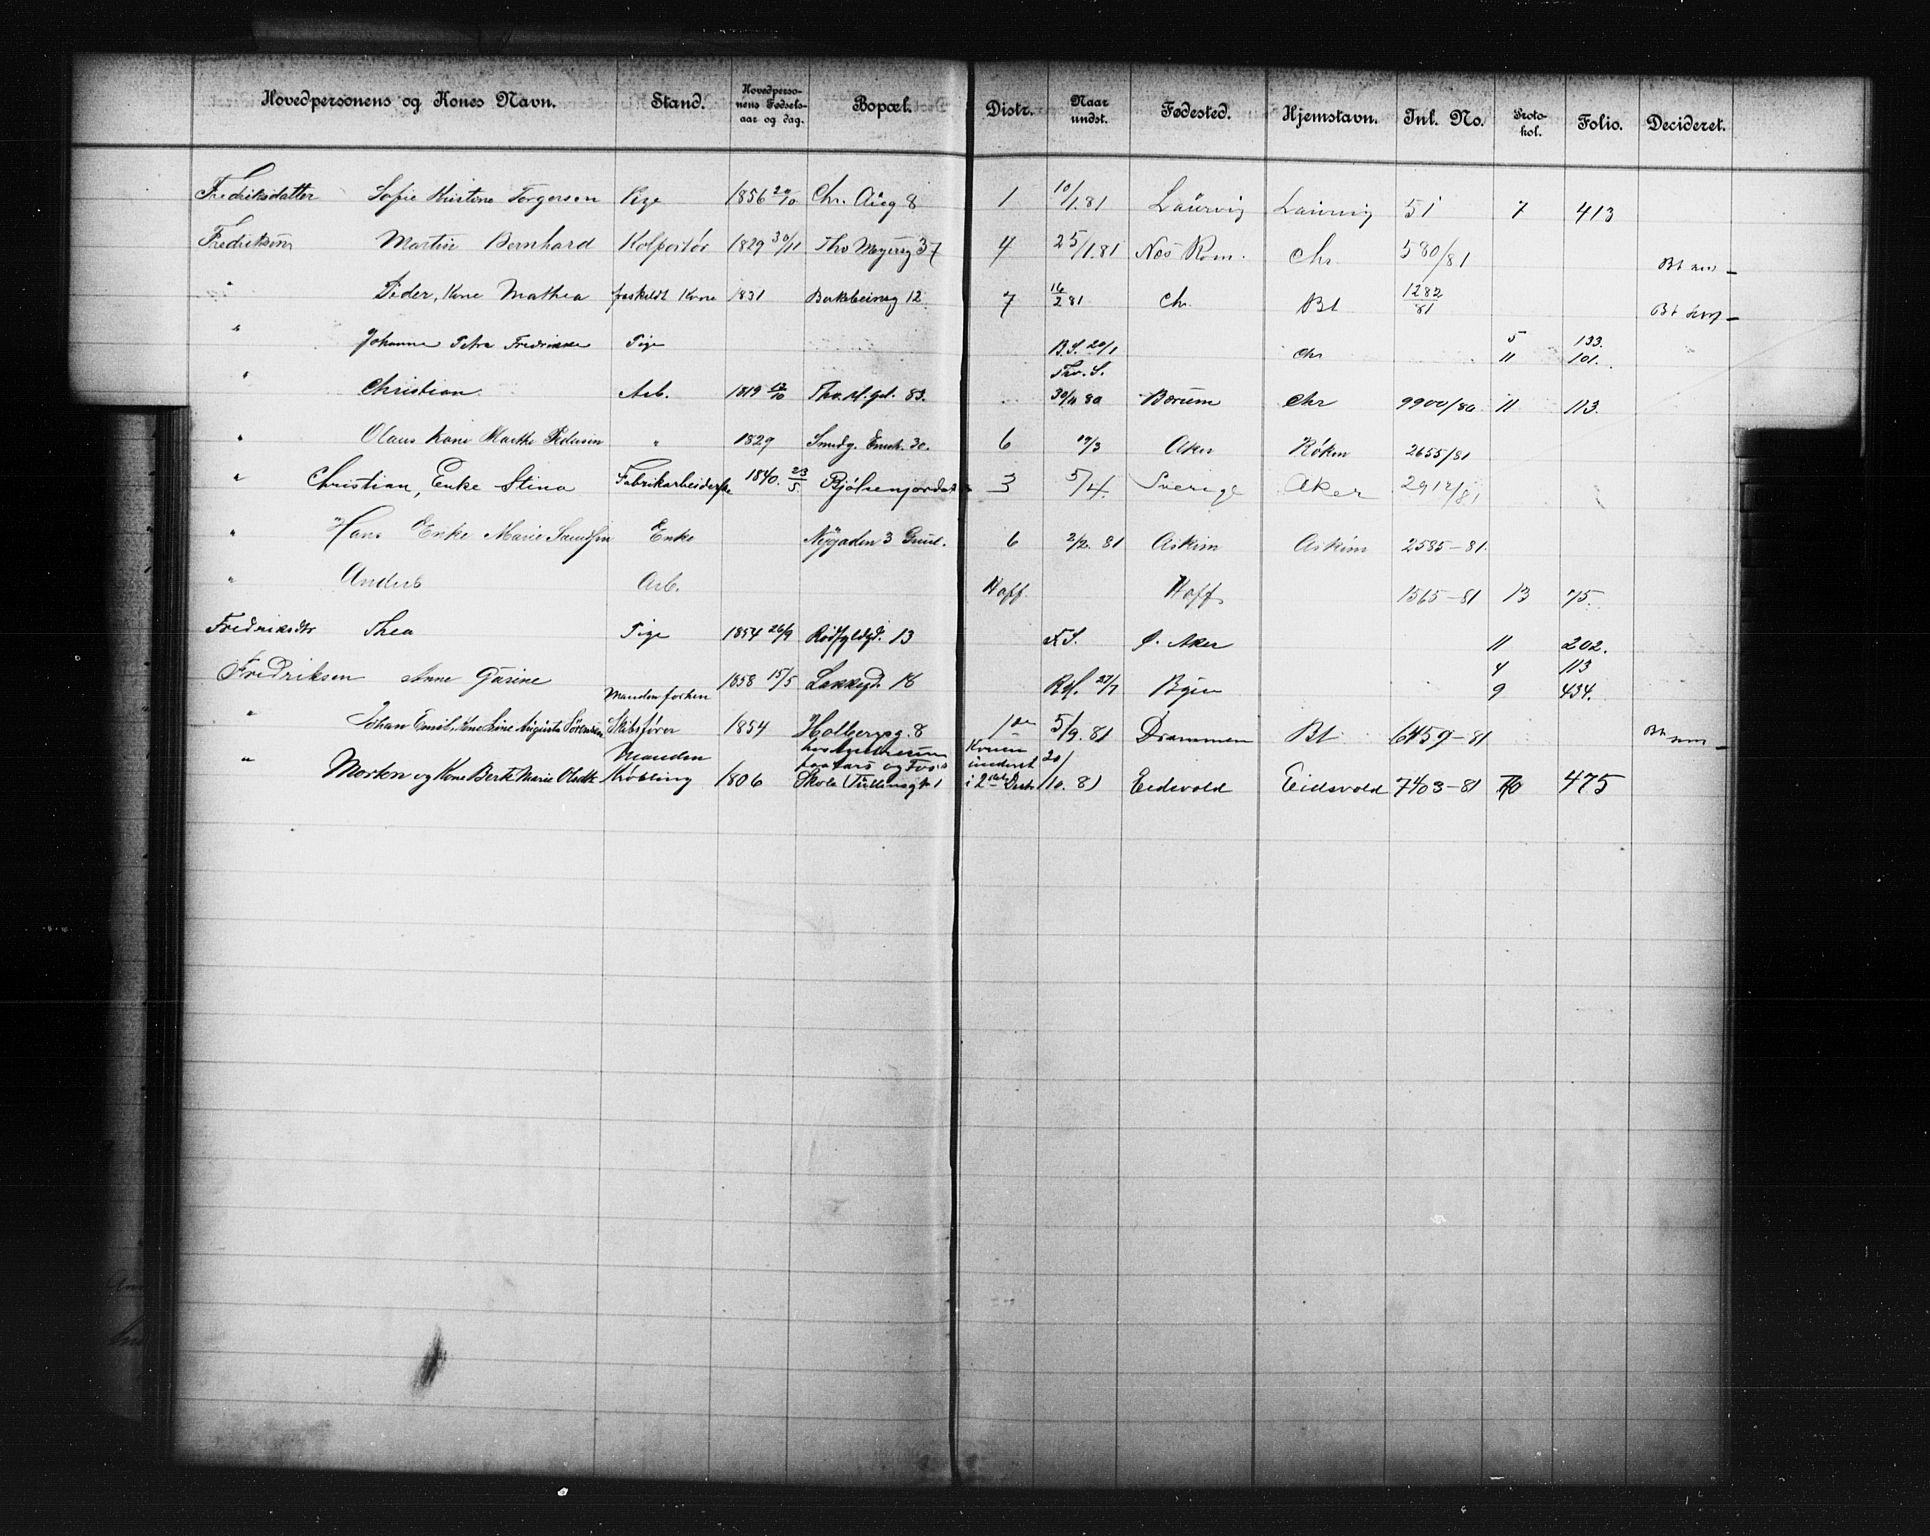 Hovedpersonens og Kones Navn. Stand. Hovedperso-nens Fødsels-aar og dag. Bopæl. Distr. Naar undst. Fødested. Hjemstavn. Inl. No. Proto-kol. Folio. Decideret.
Fredriksdatter Sofie Kristine Torgersen Pige 1856 20/10 Chr. Aug 8 1 10/1.81 Laurvig Laurvig 51 7 413
Fredriksen Martin Bernhard Kolportør 1829 30/11 Thv Meyersg 37 4 25/1.81 Nes Rom. Chr 580/81 Bt
" Peder, Kone Mathea fraskildt Kone 1831 12 7 16/2 81 Chr. Bt 1282/81 Bt
" Johanne Petra Fredrikke Pige B.S. 20/1 Chr 5 133.
Thv. S. 11 101.
" Christian Arb. 1819 Thv. M. gd. 83. 30/11 80 Bærum Chr 9900/80 11 113.
" Olaus Kone Marthe Pedersen " 1829 Smedg. Enerh. 30. 6 19/3 Aker Røken 2655/81
" Christian, Enke Stina Fabrikarbeiderske 1840. 23/5 Bjølsenjordet 3 5/4. Sverige Aker 2912/81
" Hans Enke Marie Enke Nygaden 3 Grønl. 6 2/2. 81 Askim Askim 2585-81.
" Anders Arb. Hoff Hoff 1565-81 13 75.
Fredriksdtr Thea Pige 1854 26/9 Rødfyldgd. 13 F.S. Ø. Aker 11 202.
4 113
Fredriksen Anne Gurine 1858 15/5 Lakkegd 18 27/7 9 434.
" Johan Emil, Kone Line Augusta Sørensen Manden forhen Skibsfører 1854 Holbergsg. 8 1ste 5/9. 81 Drammen Bt 6459-81 Bt
" Morten og Kone Berte Marie Olsdtr Manden Købling 1806 hos og Skole Tullinsgt 1 Konen underst i 2det Distr 20/10. 81 Eidsvold Eidsvold 7403-81 10 475